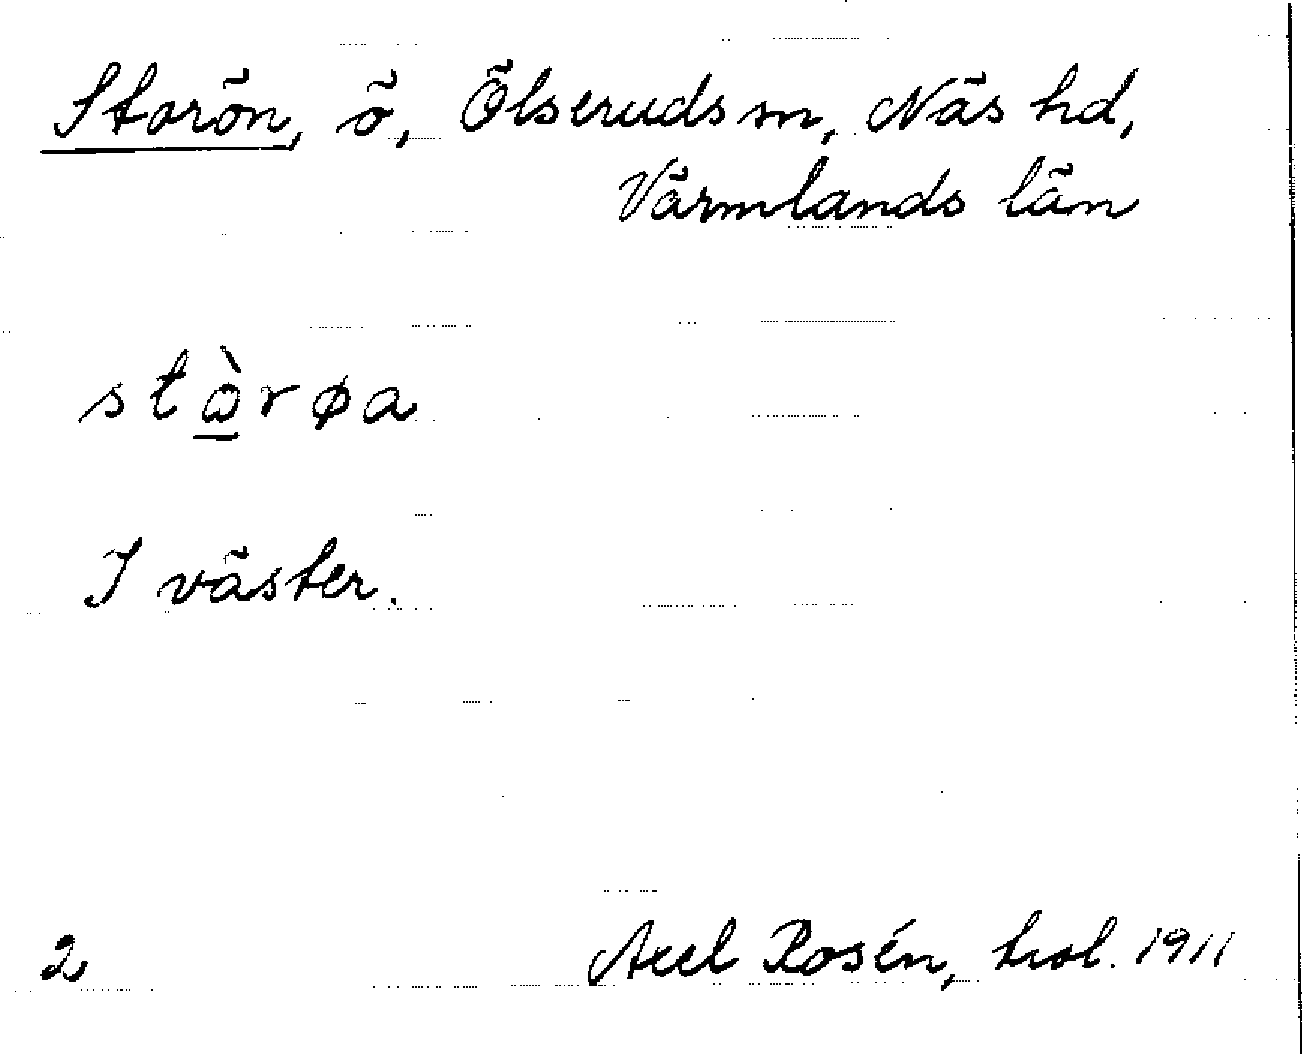 Storön, ö, Ölseruds sn, Näs hd,
Värmlands län
stò̱røa
I väster.
2 Axel Rosén, trol. 1911